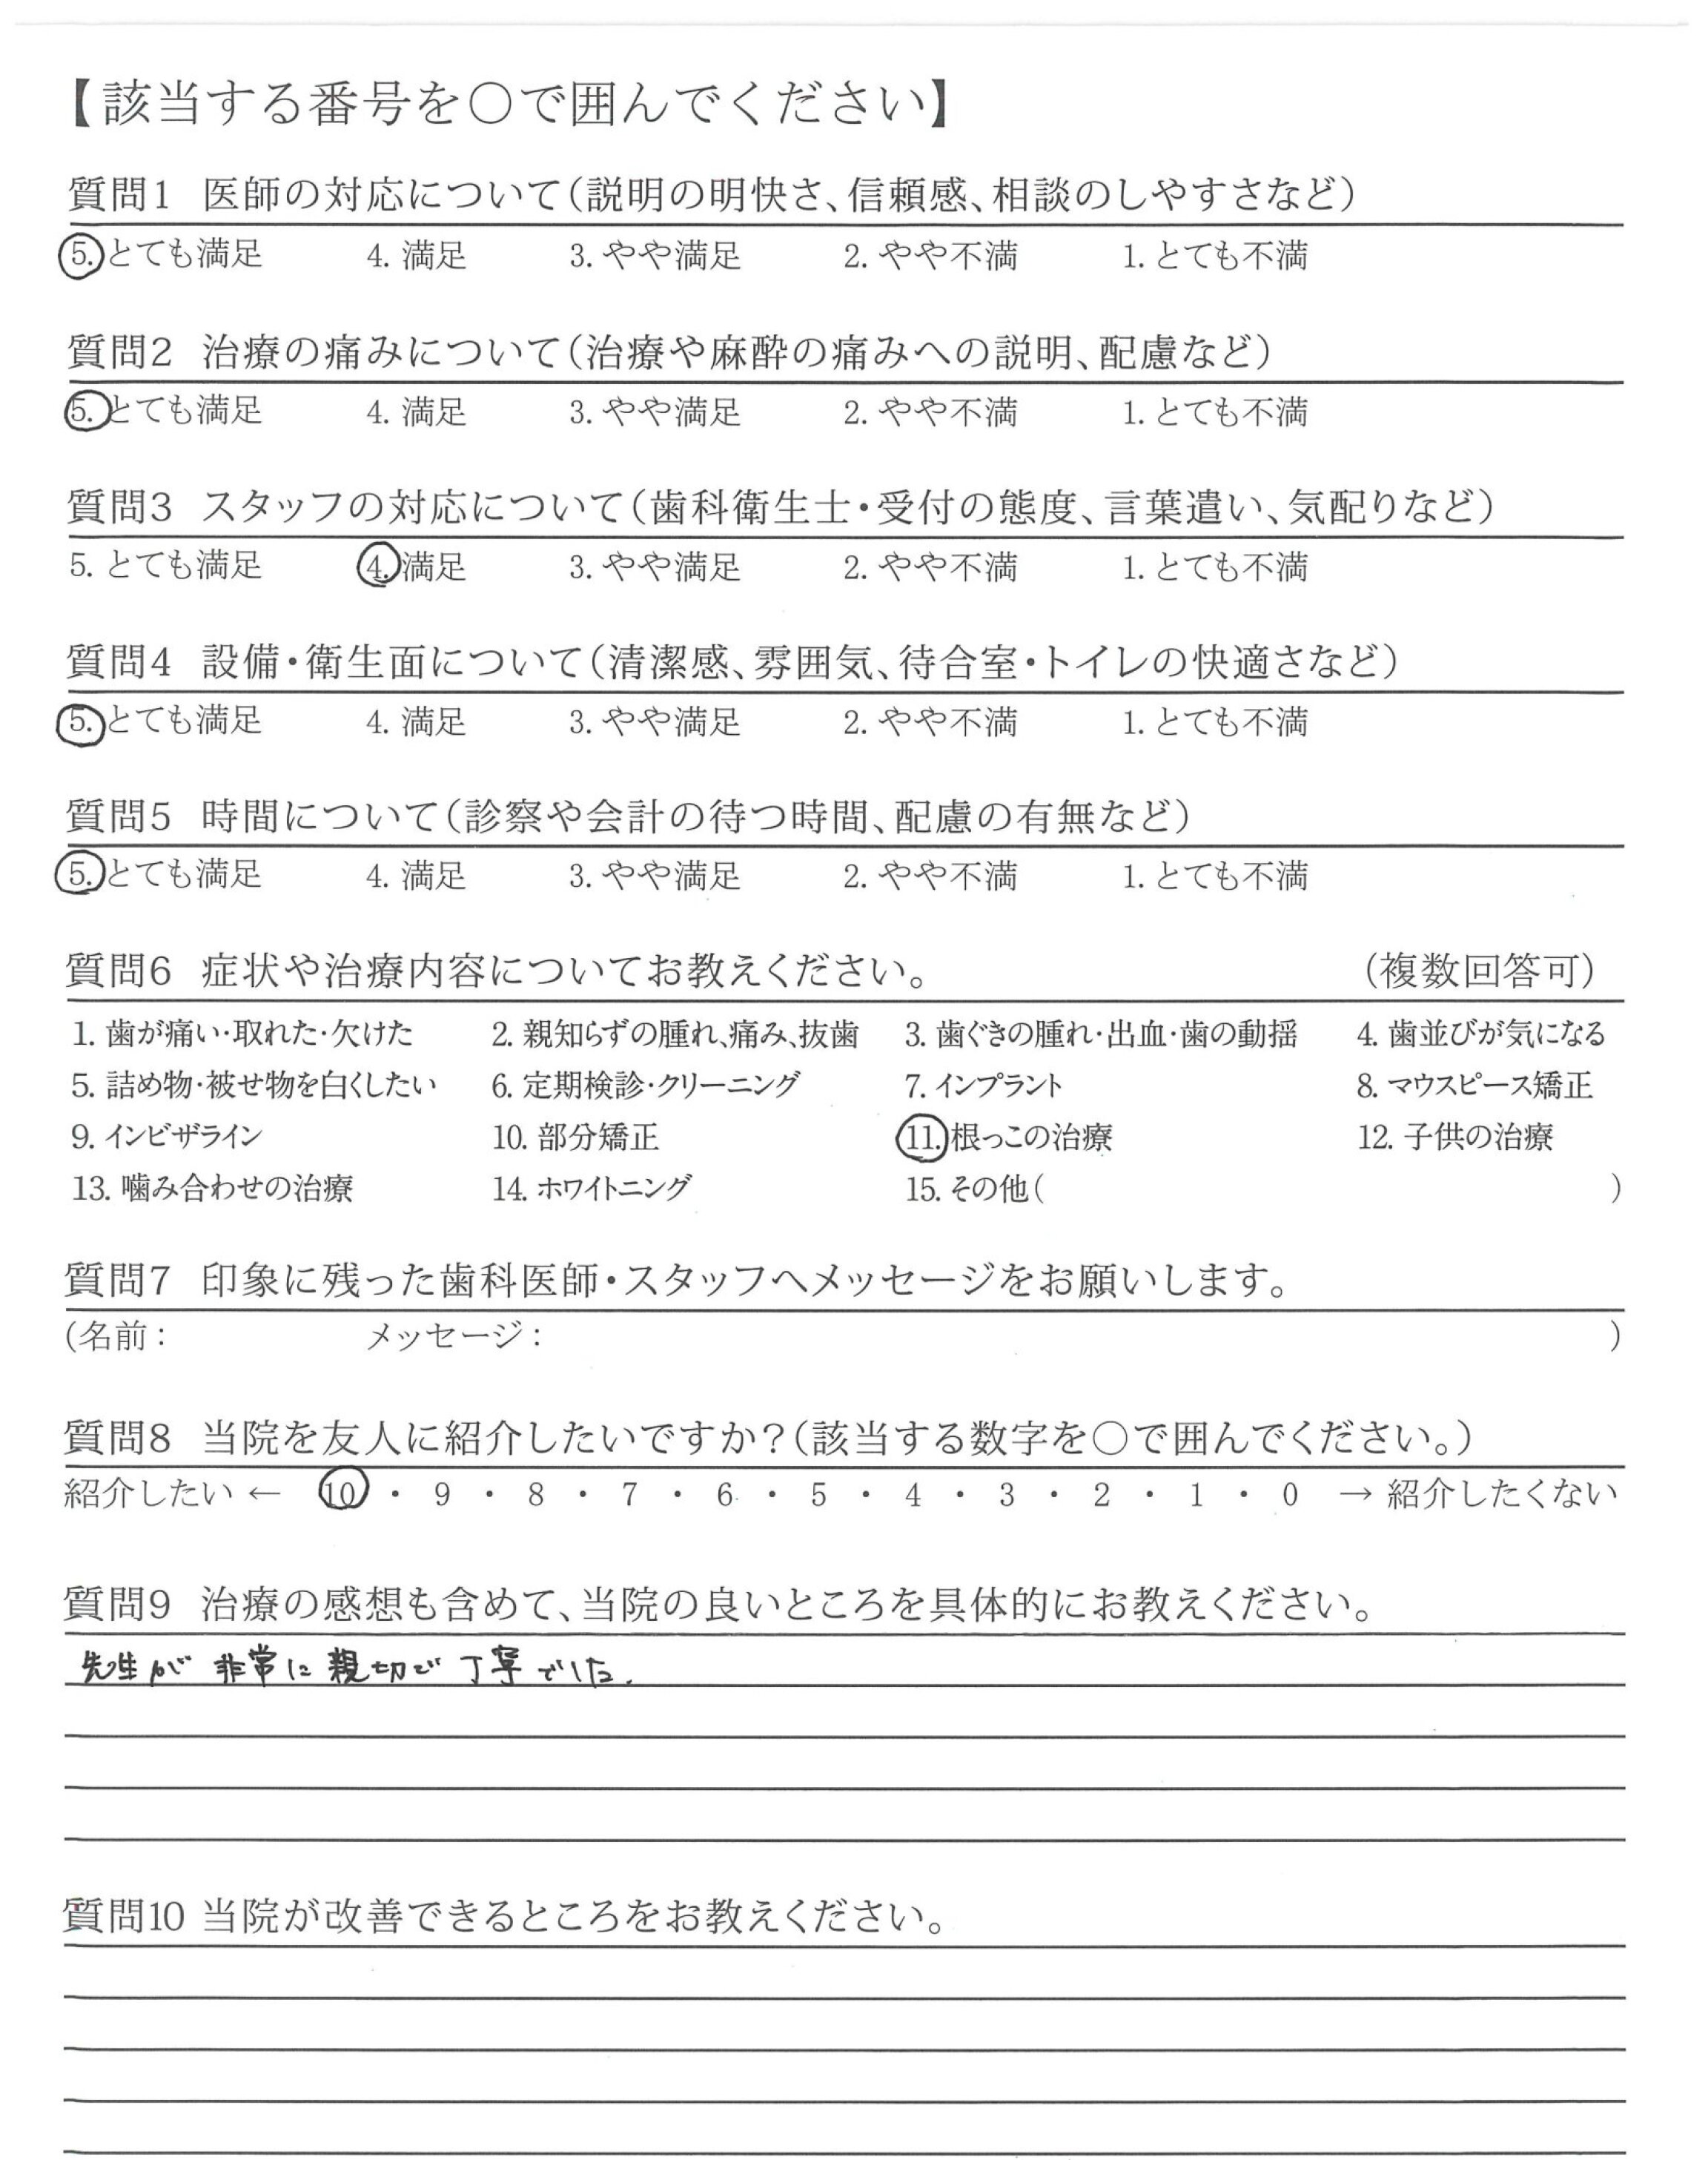 【該当する番号を〇で囲んでください】
質問1 医師の対応について(説明の明快さ、信頼感、相談のしやすさなど)
5. とても満足 4. 満足 3. やや満足 2. やや不満 1. とても不満
質問2 治療の痛みについて(治療や麻酔の痛みへの説明、配慮など)
5. とても満足 4. 満足 3. やや満足 2. やや不満 1. とても不満
質問3 スタッフの対応について(歯科衛生士・受付の態度、言葉遣い、気配りなど)
5. とても満足 4. 満足 3. やや満足 2. やや不満 1. とても不満
質問4 設備・衛生面について(清潔感、雰囲気、待合室・トイレの快適さなど)
5. とても満足 4. 満足 3. やや満足 2. やや不満 1. とても不満
質問5 時間について(診察や会計の待つ時間、配慮の有無など)
5. とても満足 4. 満足 3. やや満足 2. やや不満 1. とても不満
質問6 症状や治療内容についてお教えください。 (複数回答可)
1. 歯が痛い・取れた・欠けた 2. 親知らずの腫れ、痛み、抜歯 3. 歯ぐきの腫れ・出血・歯の動揺 4. 歯並びが気になる
5. 詰め物・被せ物を白くしたい 6. 定期検診・クリーニング 7. インプラント 8. マウスピース矯正
9. インビザライン 10. 部分矯正 11. 根っこの治療 12. 子供の治療
13. 噛み合わせの治療 14. ホワイトニング 15. その他( )
質問7 印象に残った歯科医師・スタッフへメッセージをお願いします。
(名前: メッセージ: )
質問8 当院を友人に紹介したいですか?(該当する数字を〇で囲んでください。)
紹介したい ← 10 ・ 9 ・ 8 ・ 7 ・ 6 ・ 5 ・ 4 ・ 3 ・ 2 ・ 1 ・ 0 → 紹介したくない
質問9 治療の感想も含めて、当院の良いところを具体的にお教えください。
先生が非常に親切で丁寧でした.
質問10 当院が改善できるところをお教えください。